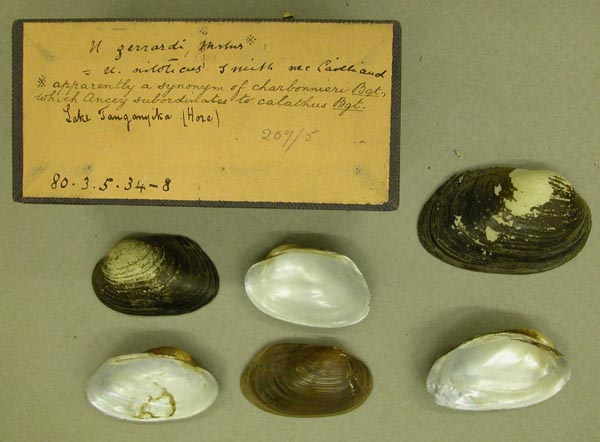 U. gerrardi, Mrtns *
= U. niloticus Smith nec Cailliaud
* apparently a synonym of charbonnieri Bgt.,
which Ancey subordinates to calathus Bgt.
Lake Tanganyika (Hore)
207/5
80.3.5.34-8